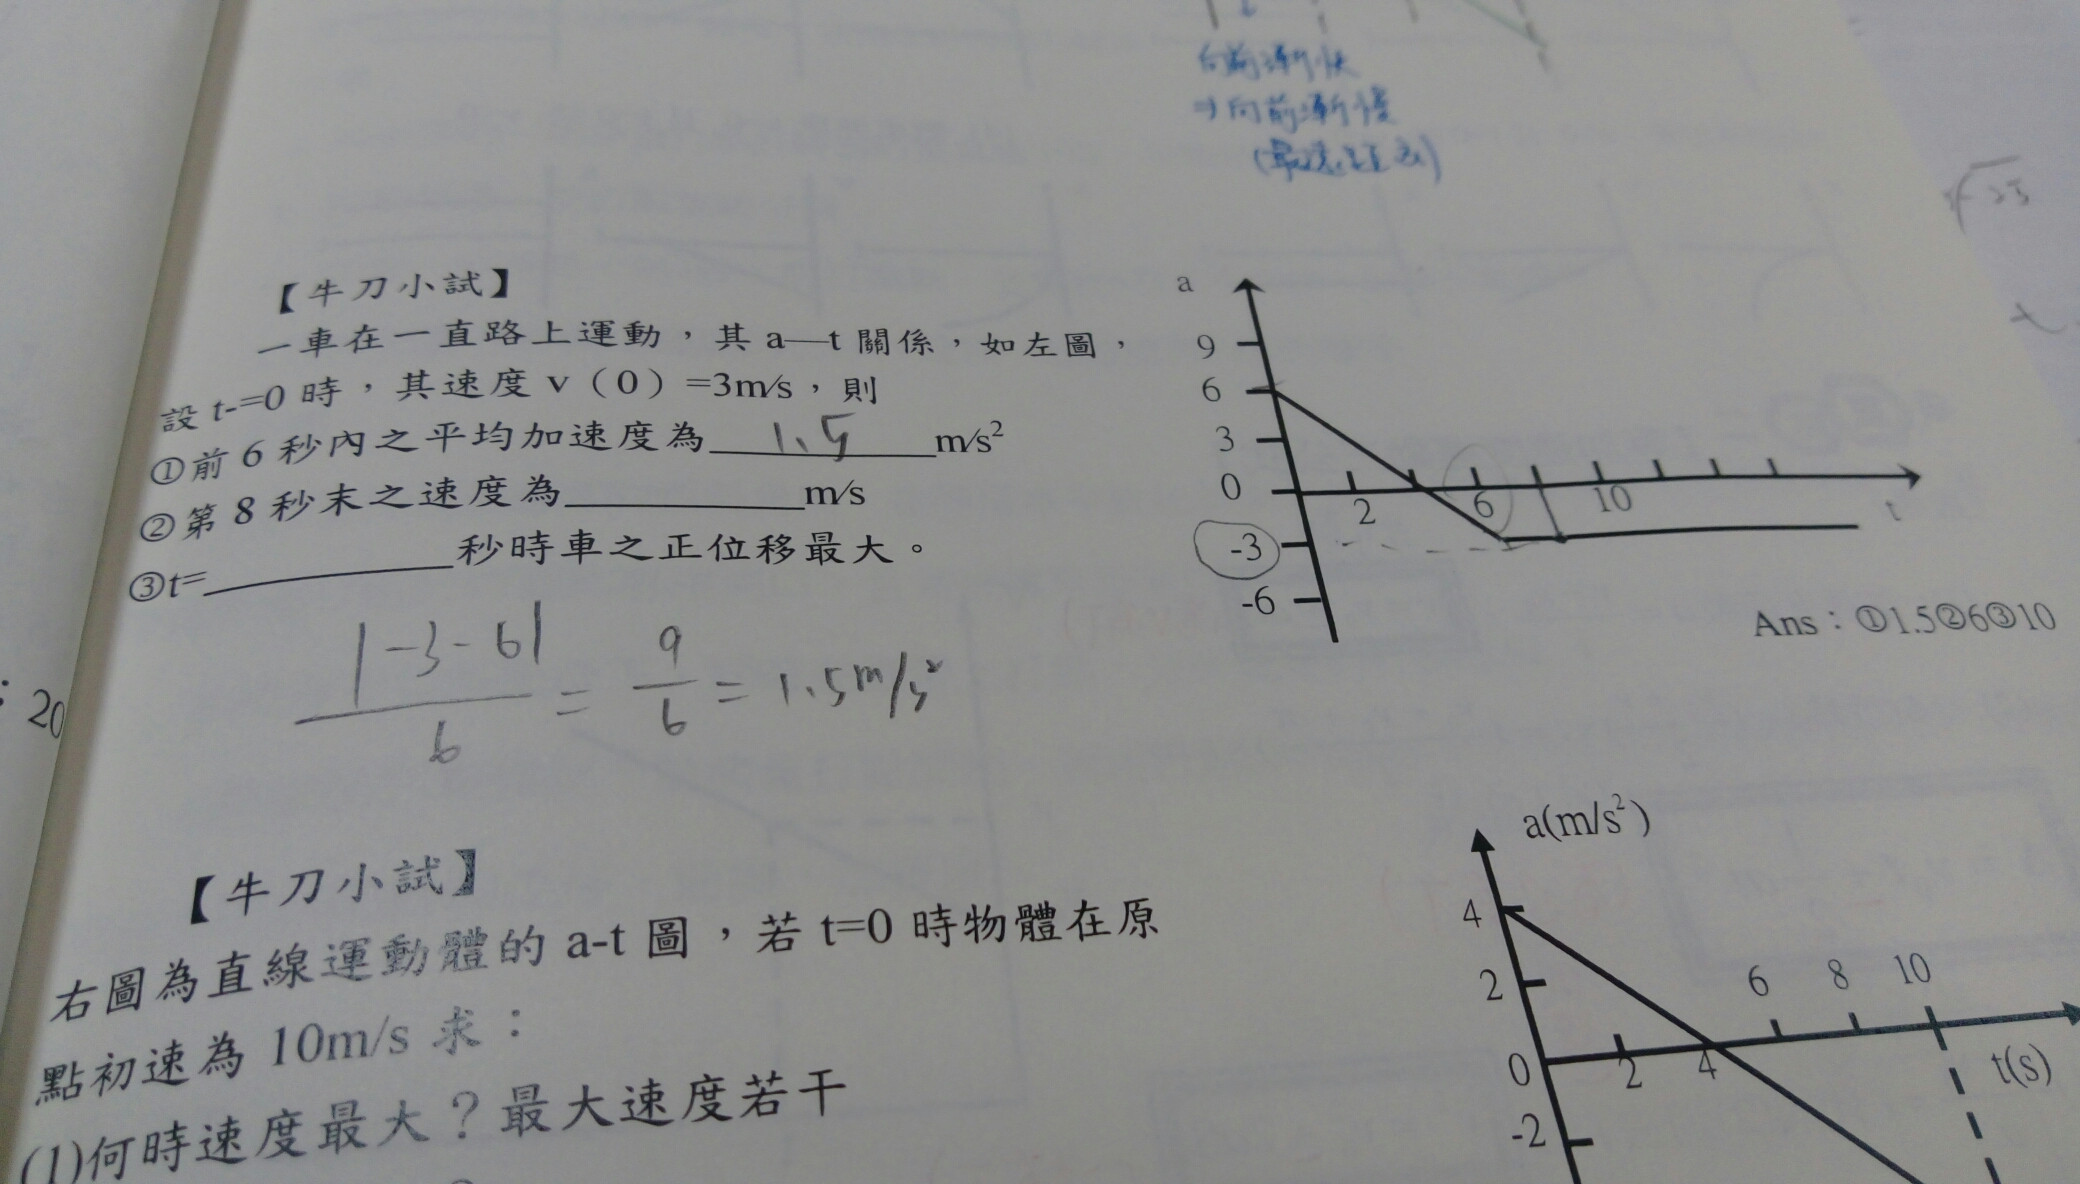 向前漸快
⇒向前漸慢
【牛刀小試】
一車在一直路上運動,其 a—t 關係,如左圖,
設 t-=0 時,其速度 v(0)=3m/s,則
①前 6 秒內之平均加速度為 1.5 m/s²
②第 8 秒末之速度為________m/s
③t=________秒時車之正位移最大。
a
9
6
3
0
-3
-6
2
6
10
t
Ans:①1.5②6③10
|-3-6|
6
= 9/6 = 1.5m/s²
: 20
【牛刀小試】
右圖為直線運動體的 a-t 圖,若 t=0 時物體在原
點初速為 10m/s 求:
(1)何時速度最大?最大速度若干
a(m/s²)
4
2
0
-2
2
4
6
8
10
t(s)